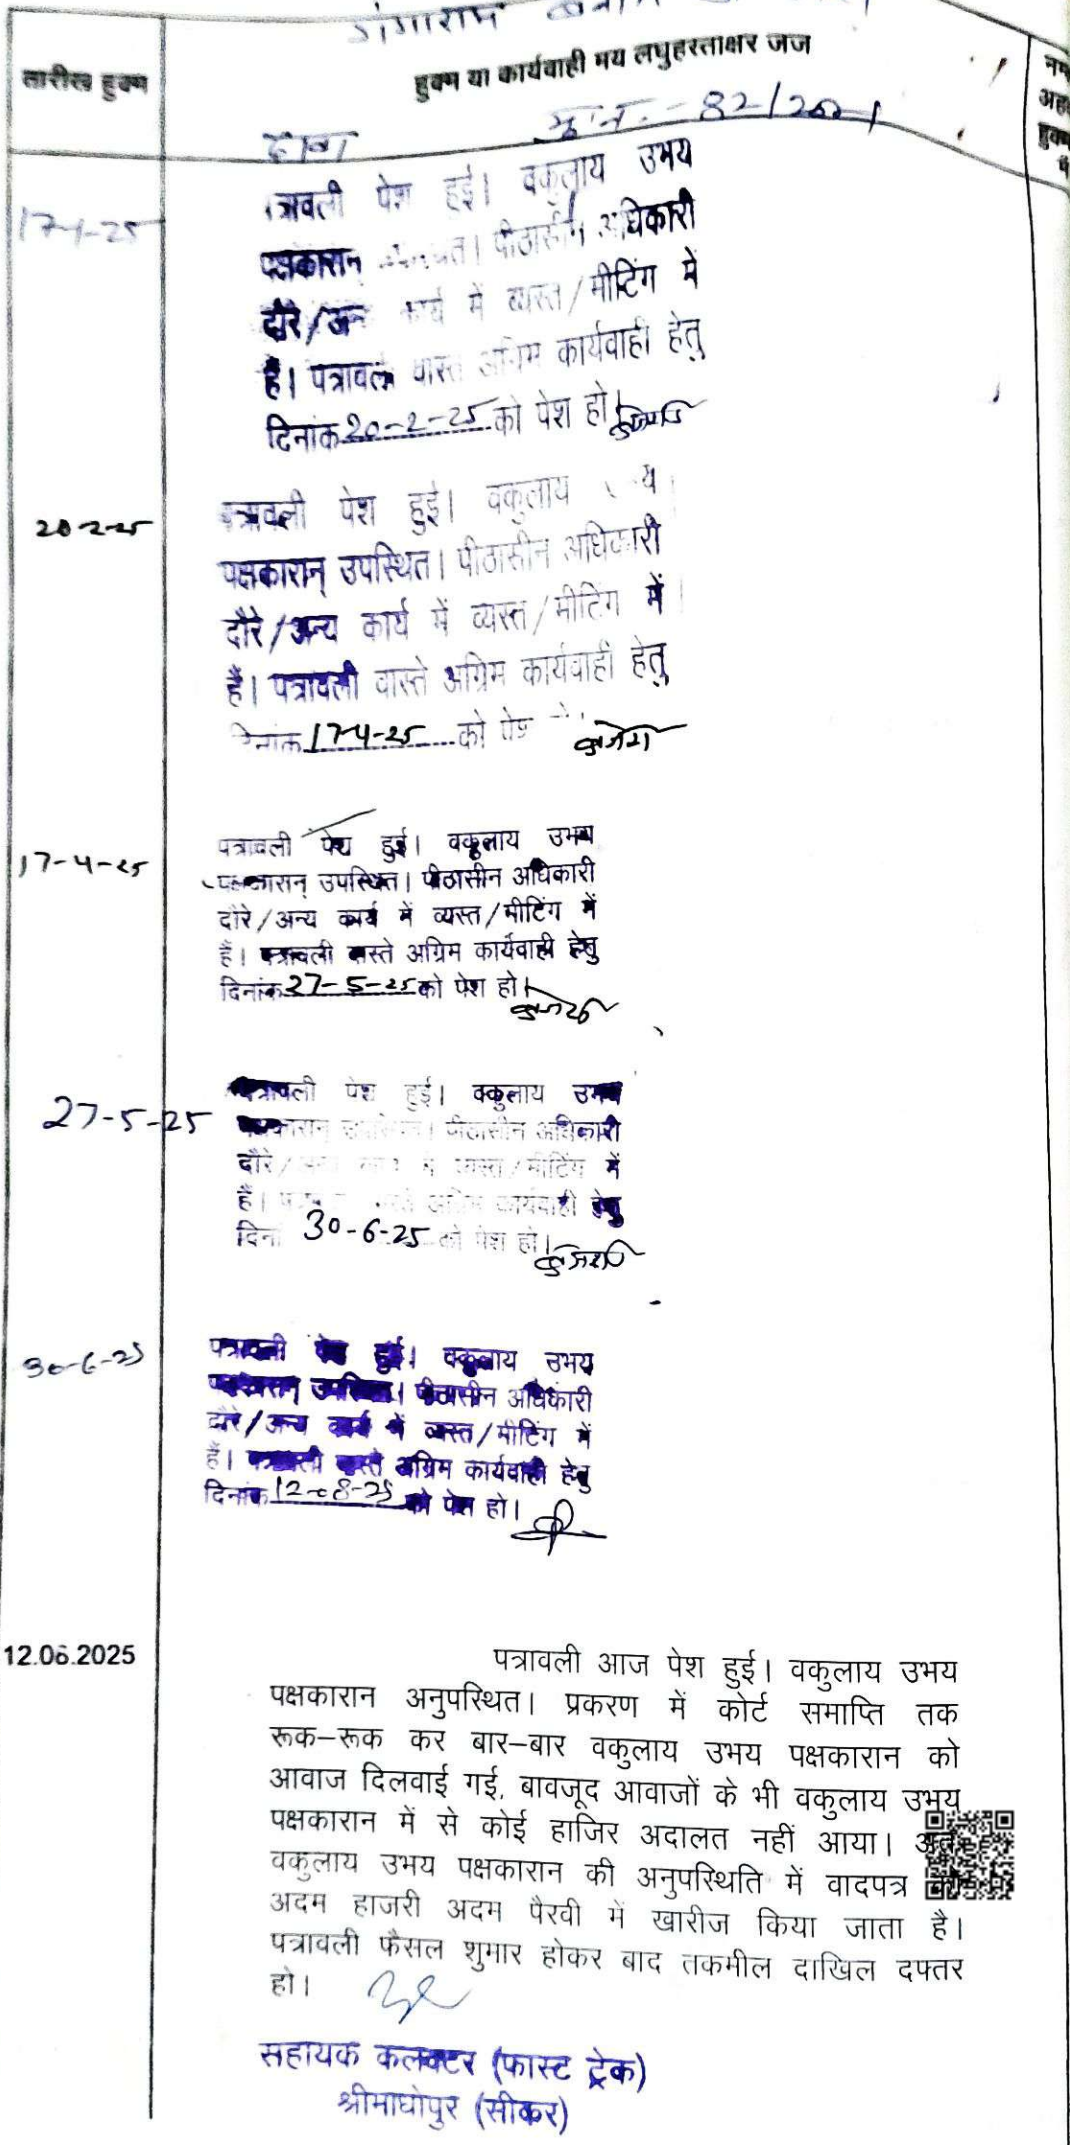 गंगाराम बनाम
तारीख हुक्म
हुक्म या कार्यवाही मय लघुहस्ताक्षर जज
दावा मु.न.- 82/2021
17-1-25
त्रावली पेश हुई। वकुलाय उभय
पक्षकारान त। पीठासीन अधिकारी
दौरे/अन कार्य में व्यस्त/मीटिंग में
हैं। पत्रावली वास्ते अग्रिम कार्यवाही हेतु
दिनांक 20-2-25 को पेश हो।
20-2-25
पत्रावली पेश हुई। वकुलाय य
पक्षकारान् उपस्थित। पीठासीन अधिकारी
दौरे/अन्य कार्य में व्यस्त/मीटिंग में
हैं। पत्रावली वास्ते अग्रिम कार्यवाही हेतु
दिनांक 17-4-25 को पेश
17-4-25
पत्रावली पेश हुई। वकुलाय उभय
पक्षकारान् उपस्थित। पीठासीन अधिकारी
दौरे/अन्य कार्य में व्यस्त/मीटिंग में
हैं। पत्रावली वास्ते अग्रिम कार्यवाही हेतु
दिनांक 27-5-25 को पेश हो।
27-5-25
पत्रावली पेश हुई। वकुलाय उभय
पक्षकारान् उपस्थित। पीठासीन अधिकारी
दौरे/अन्य कार्य में व्यस्त/मीटिंग में
हैं। अग्रिम कार्यवाही हेतु
दिनां 30-6-25 को पेश हो।
30-6-25
पत्रावली पेश हुई। वकुलाय उभय
पक्षकारान् उपस्थित। पीठासीन अधिकारी
दौरे/अन्य कार्य में व्यस्त/मीटिंग में
हैं। पत्रावली वास्ते अग्रिम कार्यवाही हेतु
दिनांक 12-08-25 को पेश हो।
12.06.2025
पत्रावली आज पेश हुई। वकुलाय उभय
पक्षकारान अनुपस्थित। प्रकरण में कोर्ट समाप्ति तक
रूक–रूक कर बार–बार वकुलाय उभय पक्षकारान को
आवाज दिलवाई गई, बावजूद आवाजों के भी वकुलाय उभय
पक्षकारान में से कोई हाजिर अदालत नहीं आया। अतः
वकुलाय उभय पक्षकारान की अनुपस्थिति में वादपत्र
अदम हाजरी अदम पैरवी में खारीज किया जाता है।
पत्रावली फैसल शुमार होकर बाद तकमील दाखिल दफ्तर
हो।
सहायक कलक्टर (फास्ट ट्रेक)
श्रीमाधोपुर (सीकर)